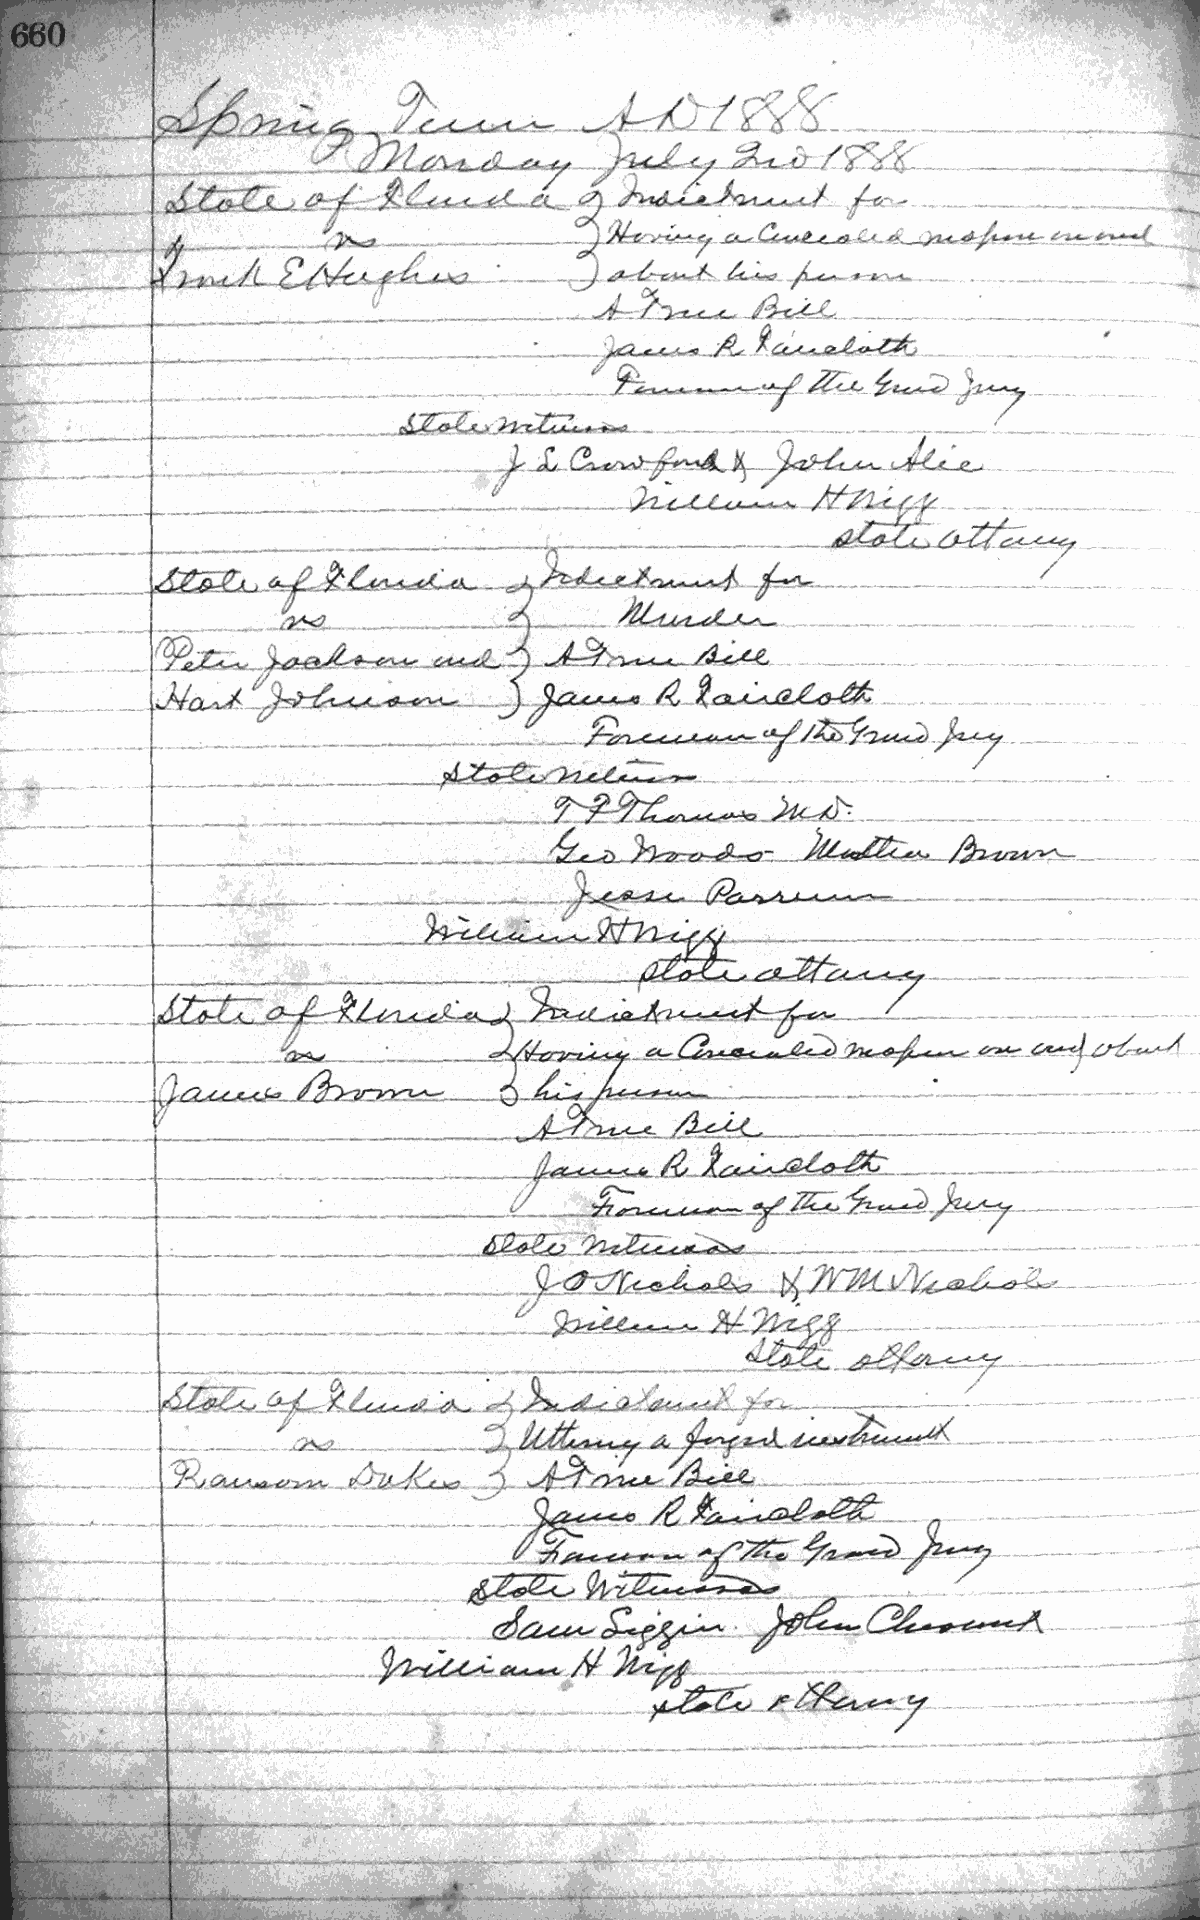 660
Spring Term A D 1888
Monday July 2nd 1888
State of Florida } Indictment for
vs } Having a Concealed weapon on and
Frank E Hughes } about his person
A True Bill
James R Faircloth
Foreman of the Grand Jury
State Witness
J L Crawford & John
William H Wigg
State attorny
State of Florida } Indictment for
vs } Murder
Peter Jackson and } A True Bill
Hart Johnson } James R Faircloth
Foreman of the Grand Jury
State Witness
T F Thomas M D.
Geo Woods Brown
Jesse
William H Wigg
State attorny
State of Florida } Indictment for
vs } Having a Concealed weapon on and about
James Brown } his person
A True Bill
James R Faircloth
Foreman of the Grand Jury
State Witnesses
J O Nichols & W M Nichols
William H Wigg
State attorny
State of Florida } Indictment for
vs } Uttering a forged instrument
Ransom Dukes } A True Bill
James R Faircloth
Foreman of the Grand Jury
State Witnesses
Sam John
William H Wigg
State attorny